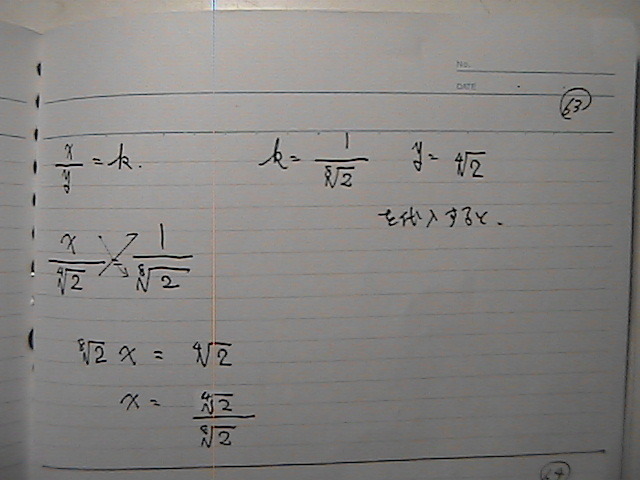 No.
DATE
63
x/y = k. k = 1/⁸√2 y = ⁴√2
を代入すると.
x/⁴√2 = 1/⁸√2
⁸√2 x = ⁴√2
x = ⁴√2/⁸√2
64